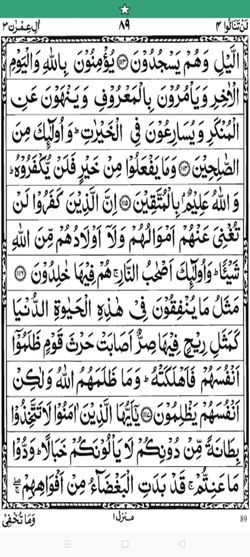 لن تنالوا ۴ ۸۹ اٰل عمرٰن ۳
الَّیْلِ وَهُمْ یَسْجُدُوْنَ ﴿۱۱۳﴾ یُؤْمِنُوْنَ بِاللّٰهِ وَالْیَوْمِ
الْاٰخِرِ وَیَاْمُرُوْنَ بِالْمَعْرُوْفِ وَیَنْهَوْنَ عَنِ
الْمُنْكَرِ وَیُسَارِعُوْنَ فِی الْخَیْرٰتِ ؕ وَاُولٰٓئِكَ مِنَ
الصّٰلِحِیْنَ ﴿۱۱۴﴾ وَمَا یَفْعَلُوْا مِنْ خَیْرٍ فَلَنْ یُّكْفَرُوْهُ ؕ
وَاللّٰهُ عَلِیْمٌۢ بِالْمُتَّقِیْنَ ﴿۱۱۵﴾ اِنَّ الَّذِیْنَ كَفَرُوْا لَنْ
تُغْنِیَ عَنْهُمْ اَمْوَالُهُمْ وَلَاۤ اَوْلَادُهُمْ مِّنَ اللّٰهِ
شَیْـًٔا ؕ وَاُولٰٓئِكَ اَصْحٰبُ النَّارِ ۚ هُمْ فِیْهَا خٰلِدُوْنَ ﴿۱۱۶﴾
مَثَلُ مَا یُنْفِقُوْنَ فِیْ هٰذِهِ الْحَیٰوةِ الدُّنْیَا
كَمَثَلِ رِیْحٍ فِیْهَا صِرٌّ اَصَابَتْ حَرْثَ قَوْمٍ ظَلَمُوْۤا
اَنْفُسَهُمْ فَاَهْلَكَتْهُ ؕ وَمَا ظَلَمَهُمُ اللّٰهُ وَلٰكِنْ
اَنْفُسَهُمْ یَظْلِمُوْنَ ﴿۱۱۷﴾ یٰۤاَیُّهَا الَّذِیْنَ اٰمَنُوْا لَا تَتَّخِذُوْا
بِطَانَةً مِّنْ دُوْنِكُمْ لَا یَاْلُوْنَكُمْ خَبَالًا ؕ وَدُّوْا
مَا عَنِتُّمْ ۚ قَدْ بَدَتِ الْبَغْضَآءُ مِنْ اَفْوَاهِهِمْ ۖۚ
وَمَا تُخْفِیْ منزل ۱ 89